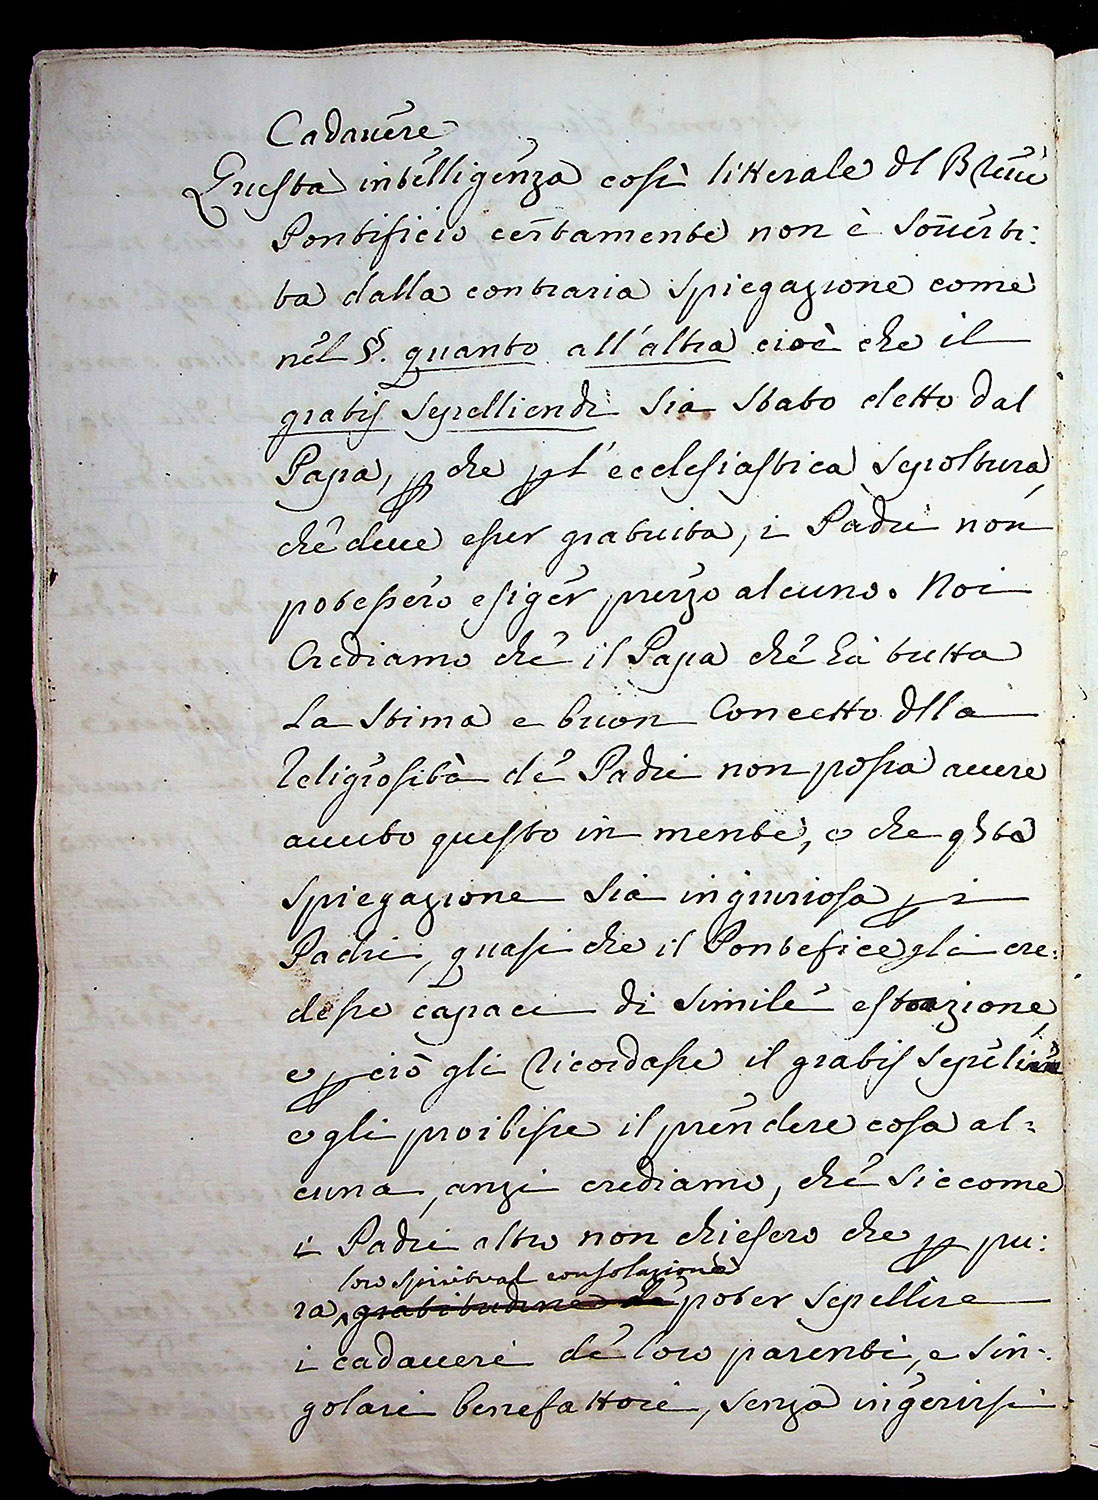 Cadauere
Questa intelligenza così litterale dl Breue
Pontificio certamente non è Souuerti:
ta dalla contraria spiegazione come
nel §. quanto all'altra cioè che il
gratis sepelliendi sia stato detto dal
Papa, p che p l'ecclesiastica sepoltura,
che deue esser gratuita, i Padri non
potessero esiger prezzo alcuno. Noi
Crediamo che il Papa che hà tutta
la stima e buon Concetto dlla
Religiosità de Padri non possa auere
auuto questo in mente, e che qsta
spiegazione sia ingiuriosa p i
Padri, quasi che il Pontefice gli cre:
desse capaci di simile estorzione,
e p ciò gli ricordasse il gratis
e gli proibisse il prendere cosa al=
cuna, anzi crediamo, che siccome
i Padri altro non chiesero che p pu:
loro spiritual consolazione
ra gratitudine de poter sepellire
i cadaueri de loro parenti, e sin-
golari benefattori, senza ingerirsi